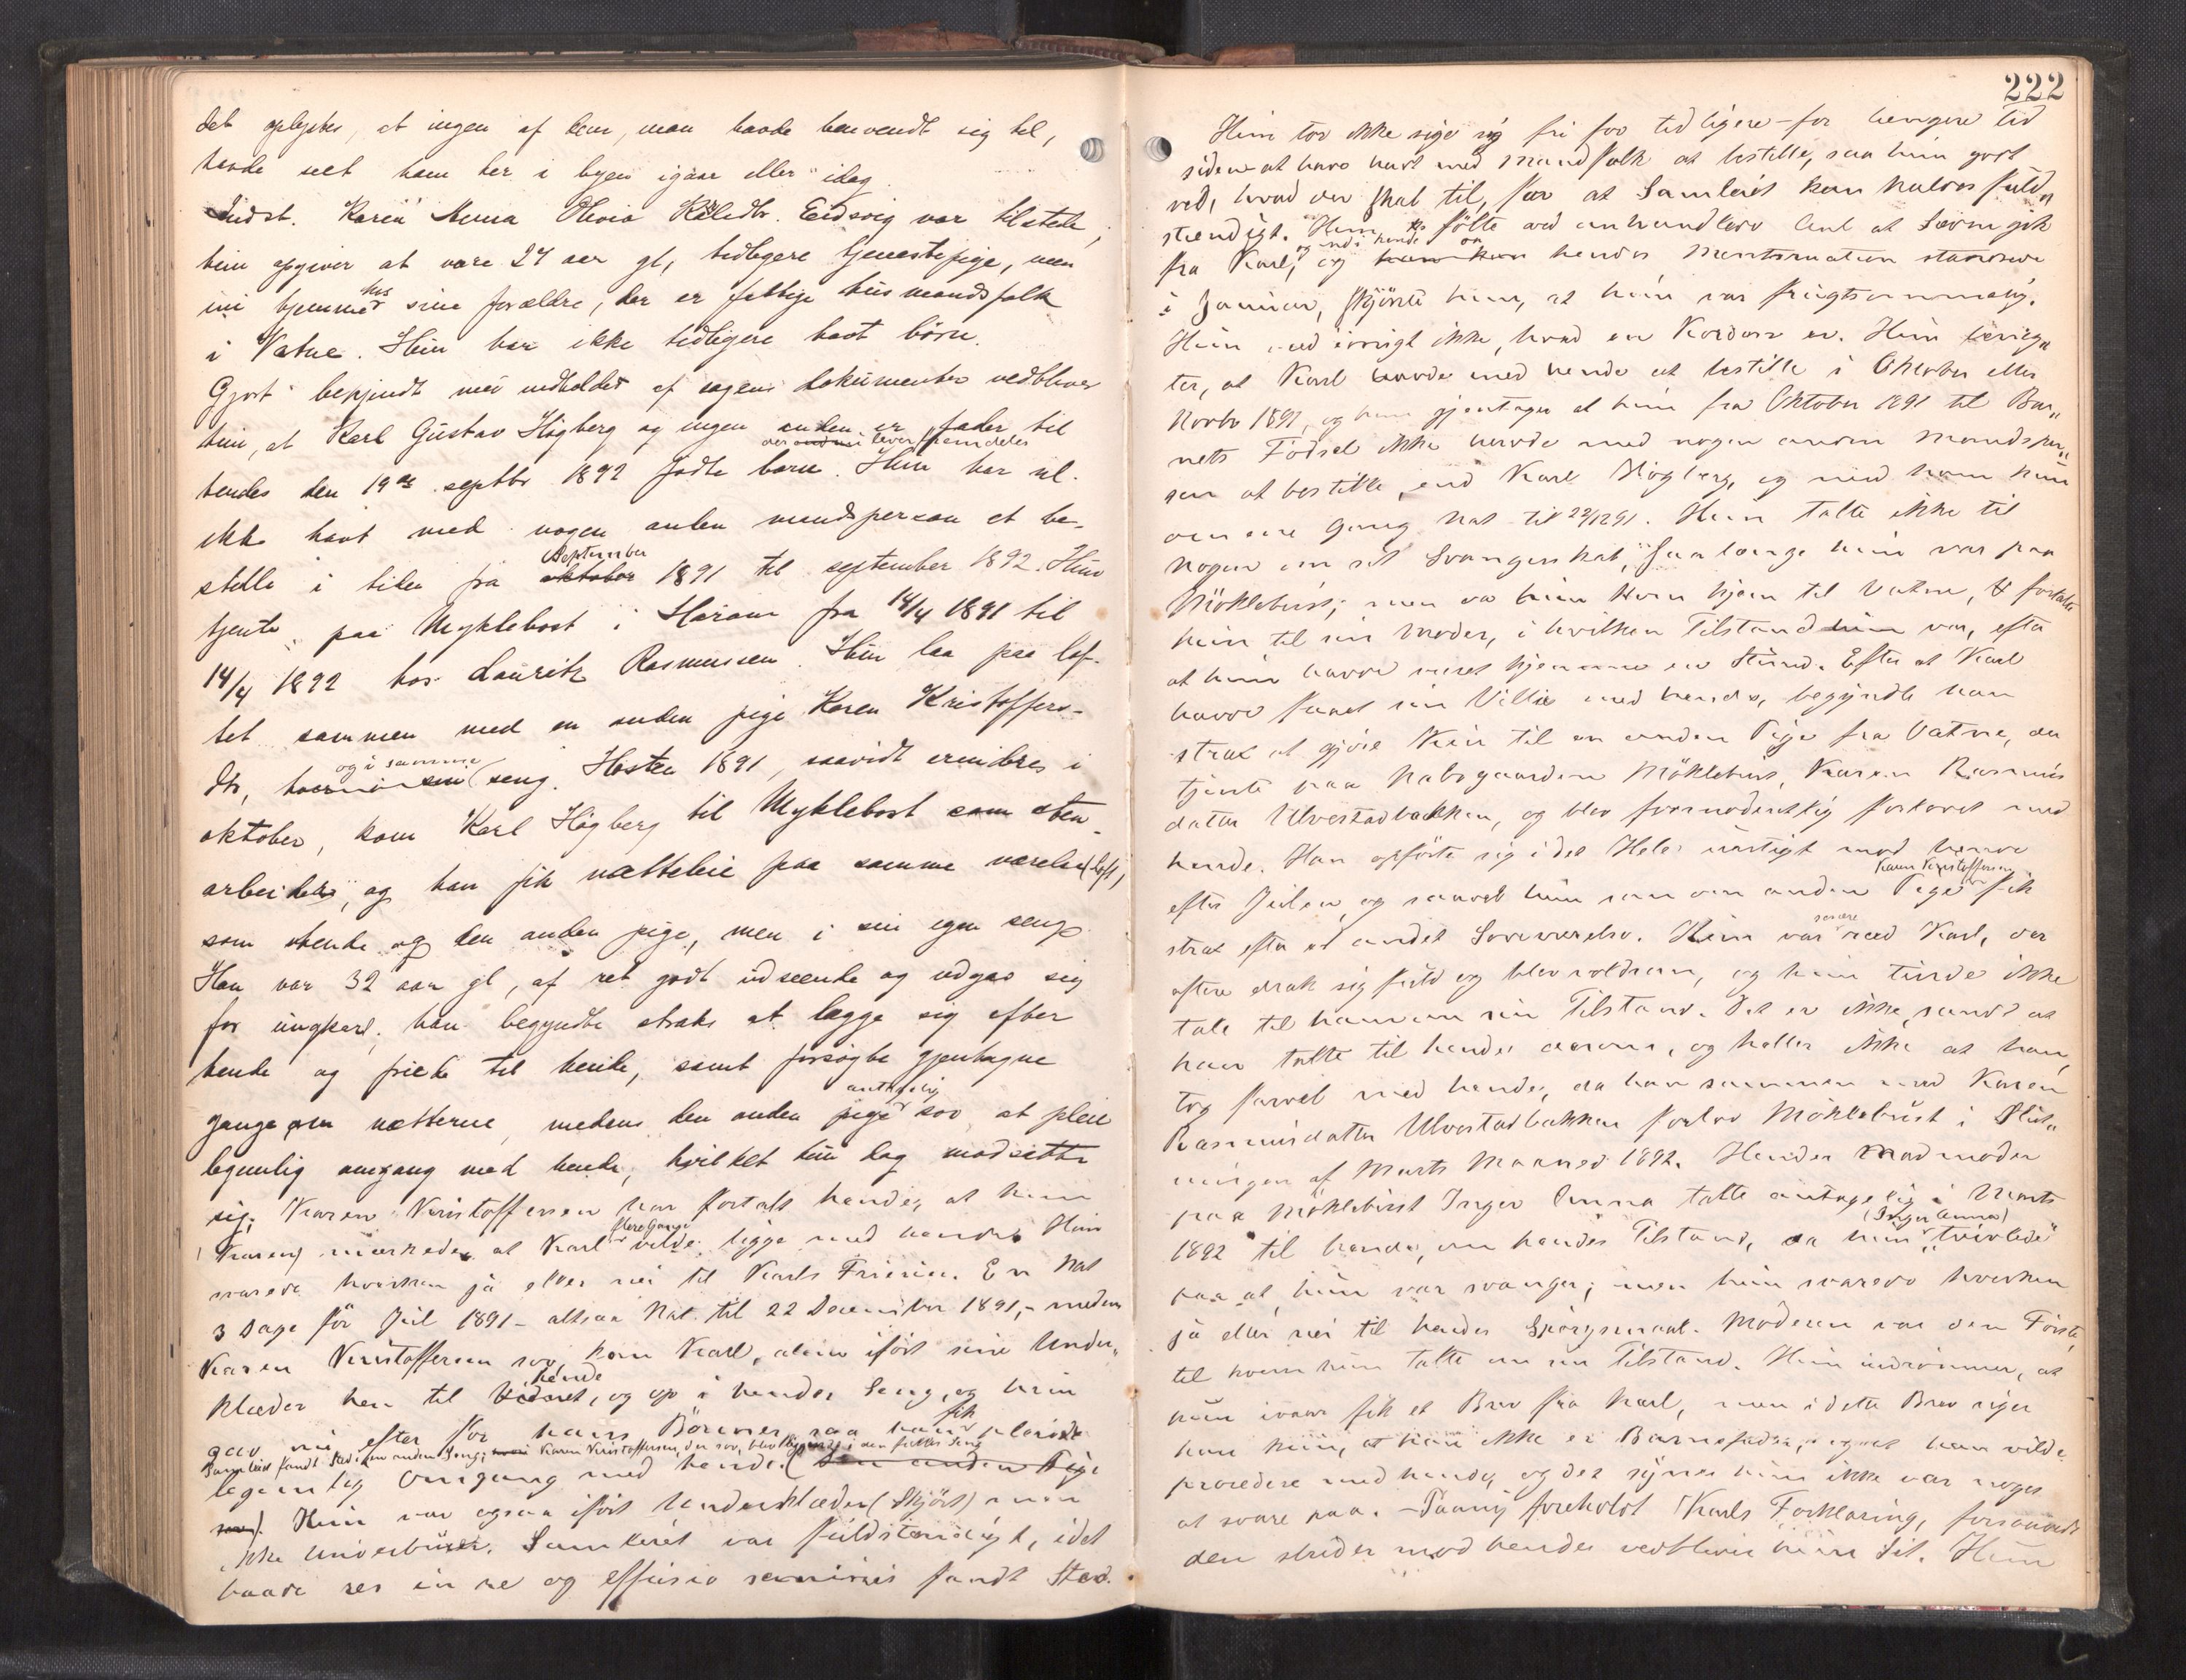 det oplystes, at ingen af dem, man havde henvendt sig til,
havde seet ham her i byen igaar eller idag.
Indst. Karen Anna Olivia Eidsvig var tilstede,
hun opgiver at være 24 aar gl, tidligere tjenestepige, nu
hjemme hos sine forældre, der er fattige husmandsfolk
i Vatne. Hun har ikke tidligere havt børn.
Gjort bekjendt med indholdet af sagens dokumenter vedbliver
hun, at Karl Gustav Högberg og ingen anden er fader til
der lever fremdeles
hendes den 19de septbr 1892 fødte barn. Hun har
ikke havt med nogen anden mandsperson at be-
stille i tiden fra oktober September 1891 til september 1892. Hun
tjente paa Myklebost i Haram fra 14/4 1891 til
14/4 1892 hos Lauritz Rasmussen. Hun laa paa lof-
tet sammen med en anden pige Karen Kristoffers-
dtr, og i samme seng. Høsten 1891, saavidt erindres i
oktober, kom Karl Högberg til Myklebost som sten-
arbeider, og han fik natteleie paa samme værelse (loft),
som hende og den anden pige, men i sin egen seng.
Han var 32 aar gl, af ret godt udseende og udgav sig
for ungkarl. han begyndte straks at lægge sig efter
hende og friede til hende, samt forsøgte gjentagne
gange om nætterne, medens den anden pige antagelig sov, at pleie
legemlig omgang med hende, hvilket hun dog modsatte
sig; Karen Kristoffersen har fortalt hende, at hun
(Karen) mærkede, at Karl flere Gange vilde ligge med hende. Hun
svarede hverken ja eller nei til Karls Frierier. En Nat
3 Dage før Jul 1891 - altsaa Nat til 22 December 1891, - medens
Karen Kristoffersen sov, kom Karl, alene iført sine Under-
klæder hen til hende, og op i hendes Seng, og hun
gav nu efter for hans Bønner, saa han fik pleiede
Samleiet fandt Sted i den anden Seng; Karen Kristoffersen, der sov, blev liggende i den fælles Seng
legemlig Omgang med hende. (Den anden Pige
sov). Hun var ogsaa iført Underklæder (Skjørt) men
ikke Underbuxer. Samleiet var fuldstændigt, idet
baade res in re og effusio seminis fandt Sted.
222
Hun tør ikke sige sig fri for tidligere - for længere Tid
siden at have havt med Mandfolk at bestille, saa hun godt
ved, hvad der skal til, for at Samleiet kan kaldes fuld-
stændigt. Hun følte ved anhandlede Leil. at Sæden gik
fra Karl, og ind i hende og da hendes Menstruation standsede
i Januar, skjønte hun, at hun var frugtsommelig.
Hun ved iøvrigt ikke, hvad en Kondom er. Hun benæg-
ter, at Karl havde med hende at bestille i Oktober eller
Novbr 1891, og hun gjentager at hun fra Oktober 1891 til Bar-
nets Fødsel ikke havde med nogen anden Mandsper-
son at bestille, end Karl Högberg, og med ham kun
den ene Gang Nat til 22/12 91. Hun talte ikke til
nogen om sit Svangerskab, saalænge hun var paa
Möklebust; men da hun kom hjem til Vatne, fortalte
hun til sin Moder, i hvilken Tilstand hun var, efter
at hun havde været hjemme en Stund. Efter at Karl
havde faaet sin Villie med hende, begyndte han
strax at gjøre Kur til en anden Pige fra Vatne, der
tjente paa Nabogaarden Möklebust, Karen Rasmus
datter Ulvestadbakken, og blev formodentlig forlovet med
hende. Han opførte sig i det Hele uartigt mod hende
efter Julen, og saavel hun som den anden Pige Karen Kristoffersen fik
strax efter et andet Soveværelse. Hun var senere ræd Karl, der
oftere drak sig fuld og blev voldsom, og hun turde ikke
tale til ham om sin Tilstand. Det er ikke sandt at
han talte til hende derom, og heller ikke at han
tog Farvel med hende, da han sammen med Karen
Rasmusdatter Ulvestadbakken forlod Möklebust i Slut-
ningen af Marts Maaned 1892. Hendes Madmoder
paa Möklebust Inger Anna talte antagelig i Marts
1892 til hende, om hendes Tilstand, da hun (Inger Anna) "tvivlede"
paa at hun var svanger; men hun svarede hverken
ja eller nei til hendes Spørgsmaal. Moderen var den Første,
til hvem hun talte om sin Tilstand. Hun indrømmer, at
hun ivaar fik et Brev fra Karl, men i dette Brev siger
han kun, at han ikke er Barnefader, og at han vilde
procedere med hende, og det synes hun ikke var noget
at svare paa. - Paany foreholdt Karls Forklaring, forsaavidt
den strider mod hendes vedbliver hun Sit. Hun